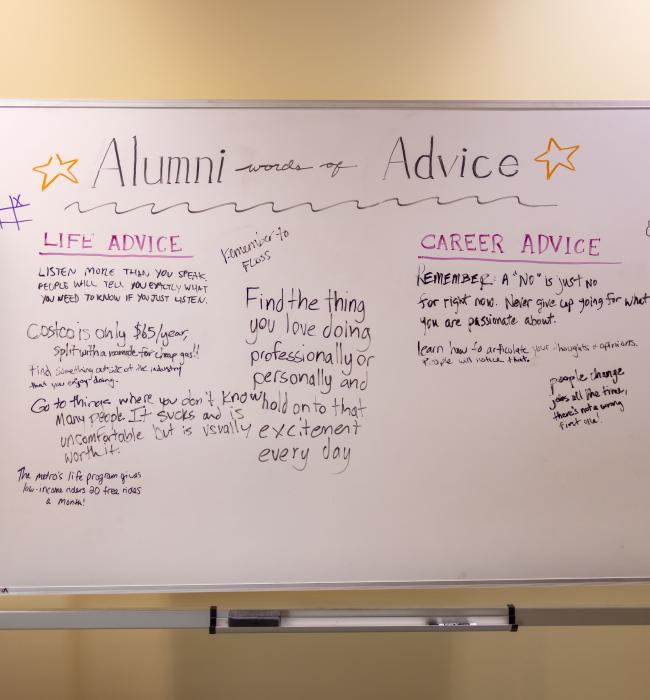 Alumni words of Advice
LIFE ADVICE
LISTEN MORE THAN YOU SPEAK.
PEOPLE WILL TELL YOU EXACTLY WHAT
YOU NEED TO KNOW IF YOU JUST LISTEN.
Costco is only $65/year,
split with a roomate for cheap gas!!
find something outside of the industry
that you enjoy doing.
Go to things where you don't know
many people. It sucks and is
uncomfortable but is usually
worth it.
The metro's life program gives
low-income riders 20 free rides
a month!
Remember to
FLOSS
Find the thing
you love doing
professionally or
personally and
hold onto that
excitement
every day
CAREER ADVICE
REMEMBER: A "NO" is just NO
for right now. Never give up going for what
you are passionate about.
learn how to articulate your thoughts + opinions.
People will notice that.
people change
jobs all the time,
there's not a wrong
first one!